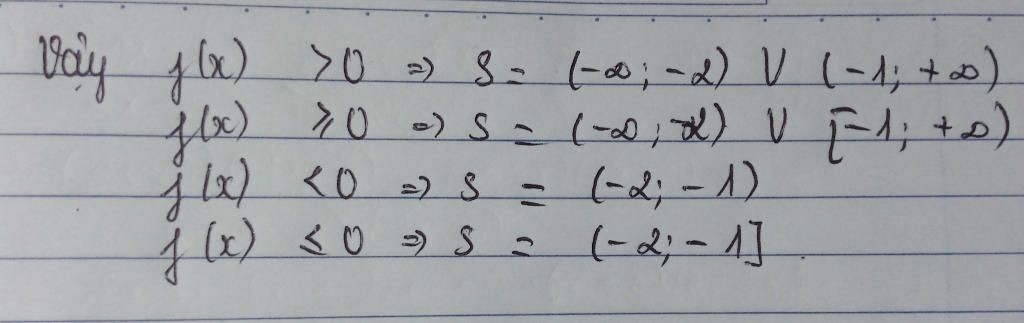 Vậy f(x) > 0 => S = (-∞; -2) ∪ (-1; +∞)
f(x) ≥ 0 => S = (-∞; -2) ∪ [-1; +∞)
f(x) < 0 => S = (-2; -1)
f(x) ≤ 0 => S = (-2; -1]